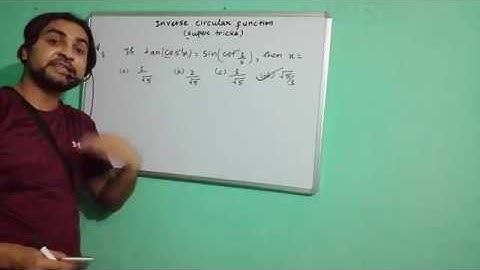 Inverse circular function
(super tricks)
If tan(cos⁻¹x) = sin(cot⁻¹ 1/2), then x =
(a) (b) 2/√5 (c) (d) √5/3